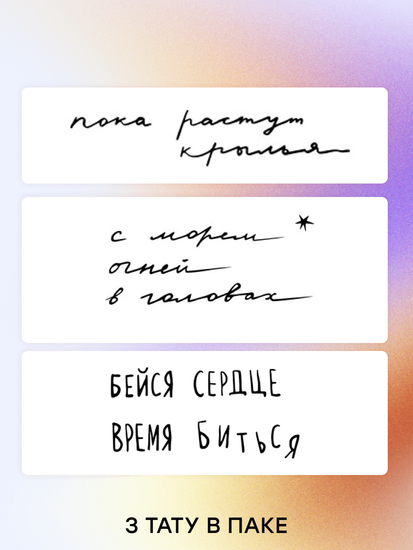 пока растут
крылья
с морем *
огней
в головах
БЕЙСЯ СЕРДЦЕ
ВРЕМЯ БИТЬСЯ
3 ТАТУ В ПАКЕ